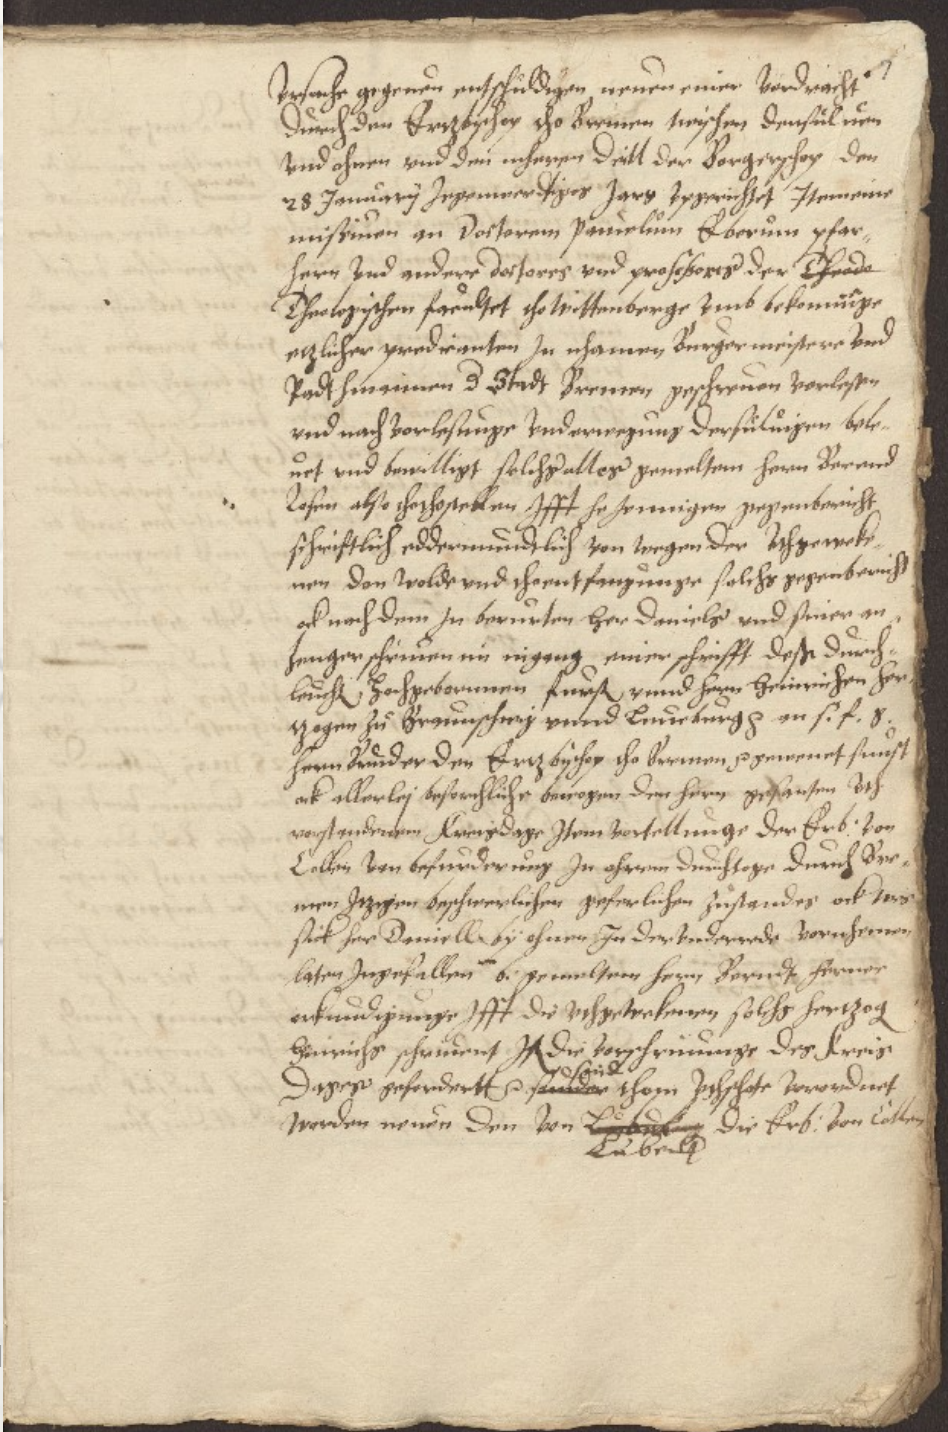 Ursache gegeuen entschuldigen neuen einer verdracht
durch den Ertzbischop tho Bremen twischen densuluen
vnd ohnen vnd den meheren Deill der Borgerschop den
28 January Jegenwerdiges Jars vpgerichtet Item eine
missiuen an Doctorem Pauelum Eberum pfar-
hern vnd andere doctores vnd professores der Theolo
Theologischen facultet tho Wittenberge vmb bekominge
etzlicher predicanten In nhamen Burgermeistere vnd
Radthmannen d Stadt Bremen geschreuen vorlesen
vnd nach vorlesunge vnd erwegung dersuluigen bele-
uet vnd bewilligt solchs alles gemeltem hern Berend
Losen also tho thostellen Ifft he Jennigen gegenbericht
schriftlich edder mundtlich von wegen der vthgeweke-
nen don wolde vnd tho entfangunge solchs gegenberichts
ok nach dem In berurten Her Daniels vnd siner an-
henger schriuen im ingang einer schrifft dess durch-
leucht Hochgebornnen furst vnnd hern Heinrichen Her-
tzogen zu Braunschweig vnnd Luneburgh an s. f. g.
hern Bruder den Ertzbischop tho Bremen gewenet sunst
ok allerlej beforchliche bewegen den hern gesanten vth
vorstandenem Kreisdage Item vortellunge der Erb: von
Collen von befurderung In ohrem durchtoge durch Bre-
men Itzigen beschwerlichen geferlichen zustandes ock wes
sick her Daniell by ohnen In der vnderrede vornhemen
laten Ingefallen gemeltem hern Berndt ferner
erkundigunge Ifft die vthgewekenen solchs hertzog
Heinrichs schriuent Ifft die vorschriuunge des Kreis
Dages gefordertt sunder thom vthschote verordnet
worden neuen den von die Erb: von Collen
Lubeck